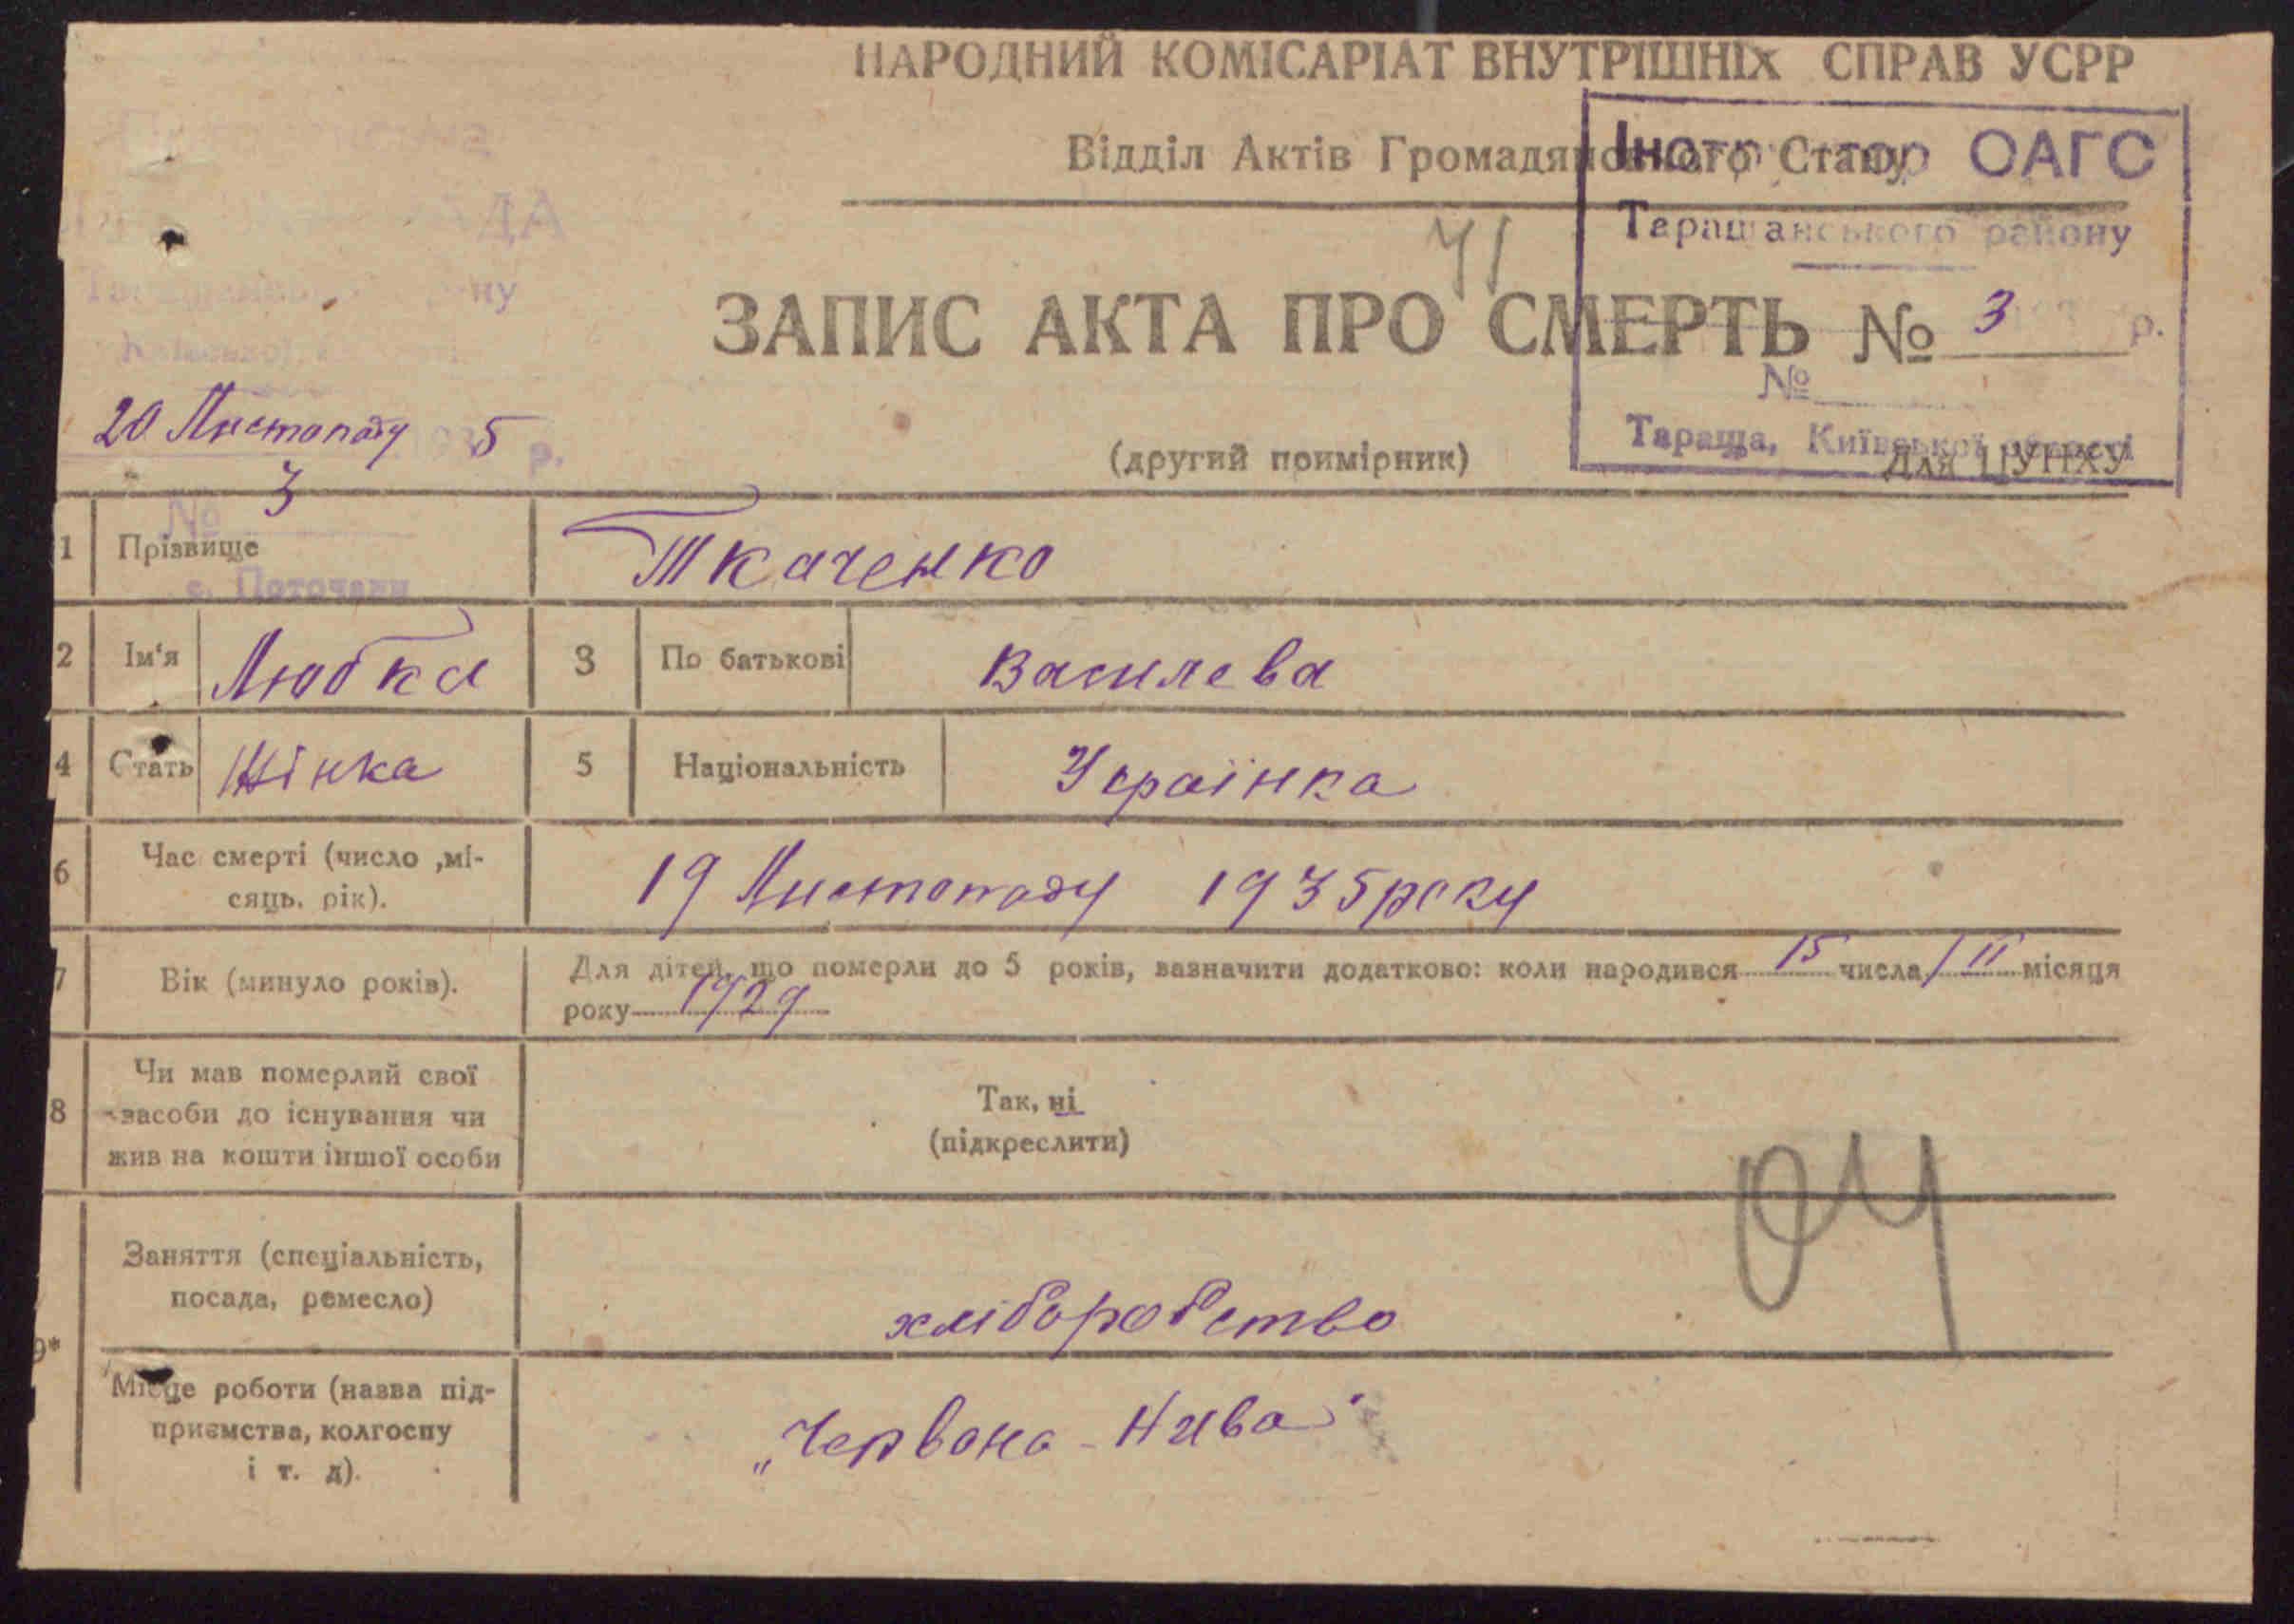 НАРОДНИЙ КОМІСАРІАТ ВНУТРІШНІХ СПРАВ УСРР
Відділ Актів Громадянського Стану
Інструктор ОАГС
Таращанського району
41
ЗАПИС АКТА ПРО СМЕРТЬ № 3
р.
№
20 Листопаду 1935 р.
(другий примірник)
Тараща, Київської області
Для ЦУНХУ
№ 3
1 Прізвище Ткаченко
2 Ім'я Любка 3 По батькові Василева
4 Стать Жінка 5 Національність Українка
6 Час смерті (число ,мі-
сяць, рік).
19 Листопаду 1935 року
7 Вік (минуло років).
Для дітей, що померли до 5 років, зазначити додатково: коли народився 15 числа / II місяця
року 1929
8 Чи мав померлий свої
засоби до існування чи
жив на кошти іншої особи
Так, ні
(підкреслити)
9*
Заняття (спеціальність,
посада, ремесло)
хліборобство
04
Місце роботи (назва під-
приємства, колгоспу
і т. д).
„Червона - Нива"